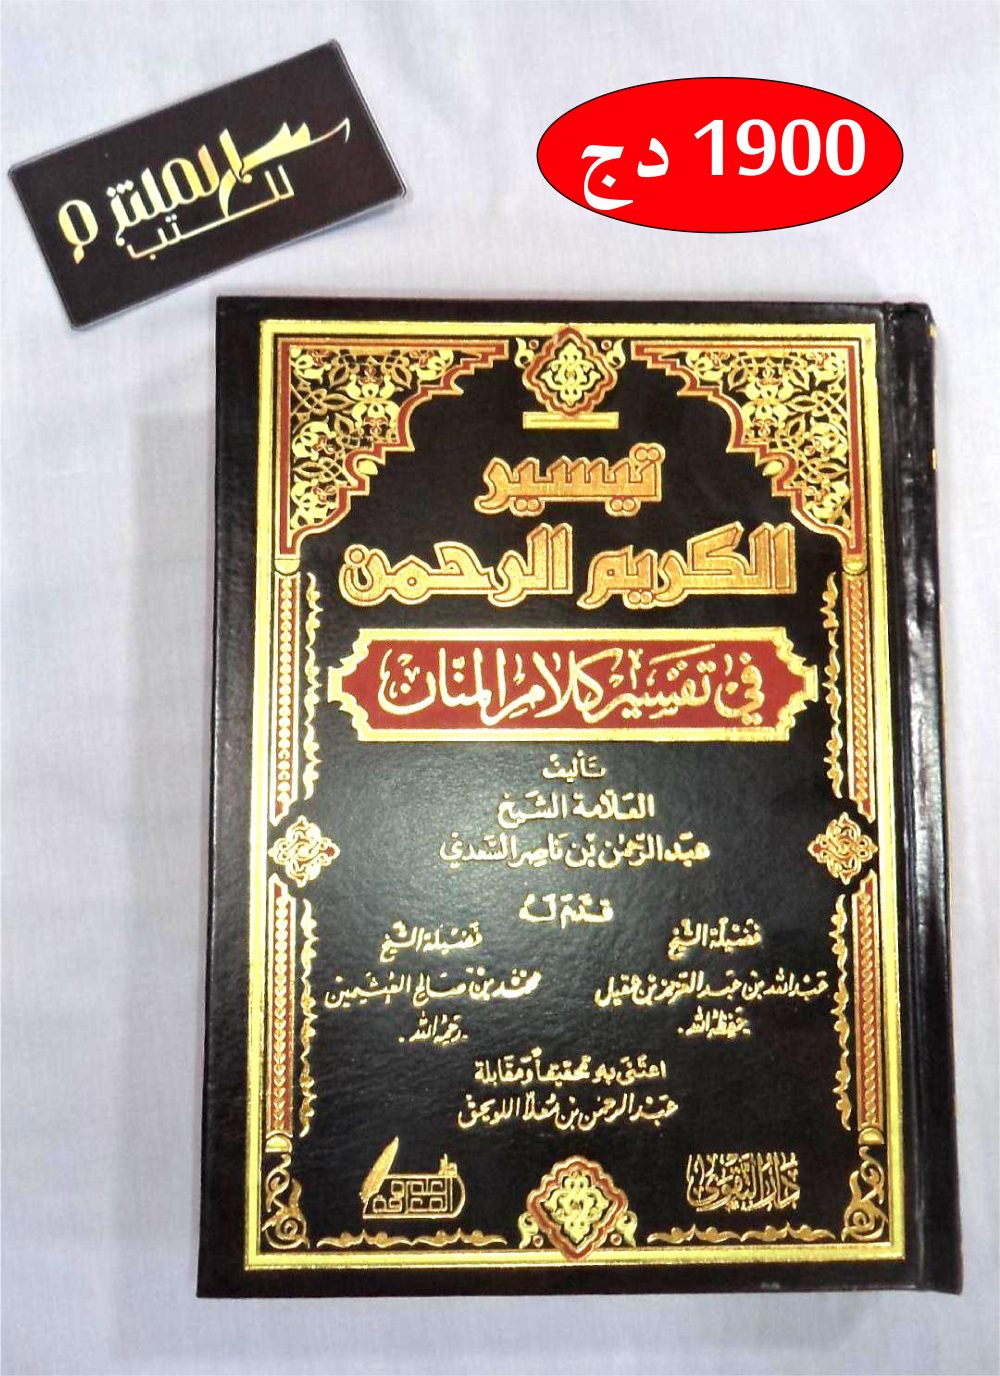 الملتزم
للكتب
1900 دج
تيسير
الكريم الرحمن
في تفسير كلام المنان
تأليف
العلامة الشيخ
عبد الرحمن بن ناصر السعدي
قدم له
فضيلة الشيخ
عبد الله بن عبد العزيز بن عقيل
حفظه الله.
فضيلة الشيخ
محمد بن صالح العثيمين
رحمه الله.
اعتنى به تحقيقاً ومقابلة
عبد الرحمن بن معلا اللويحق
دار التقوى